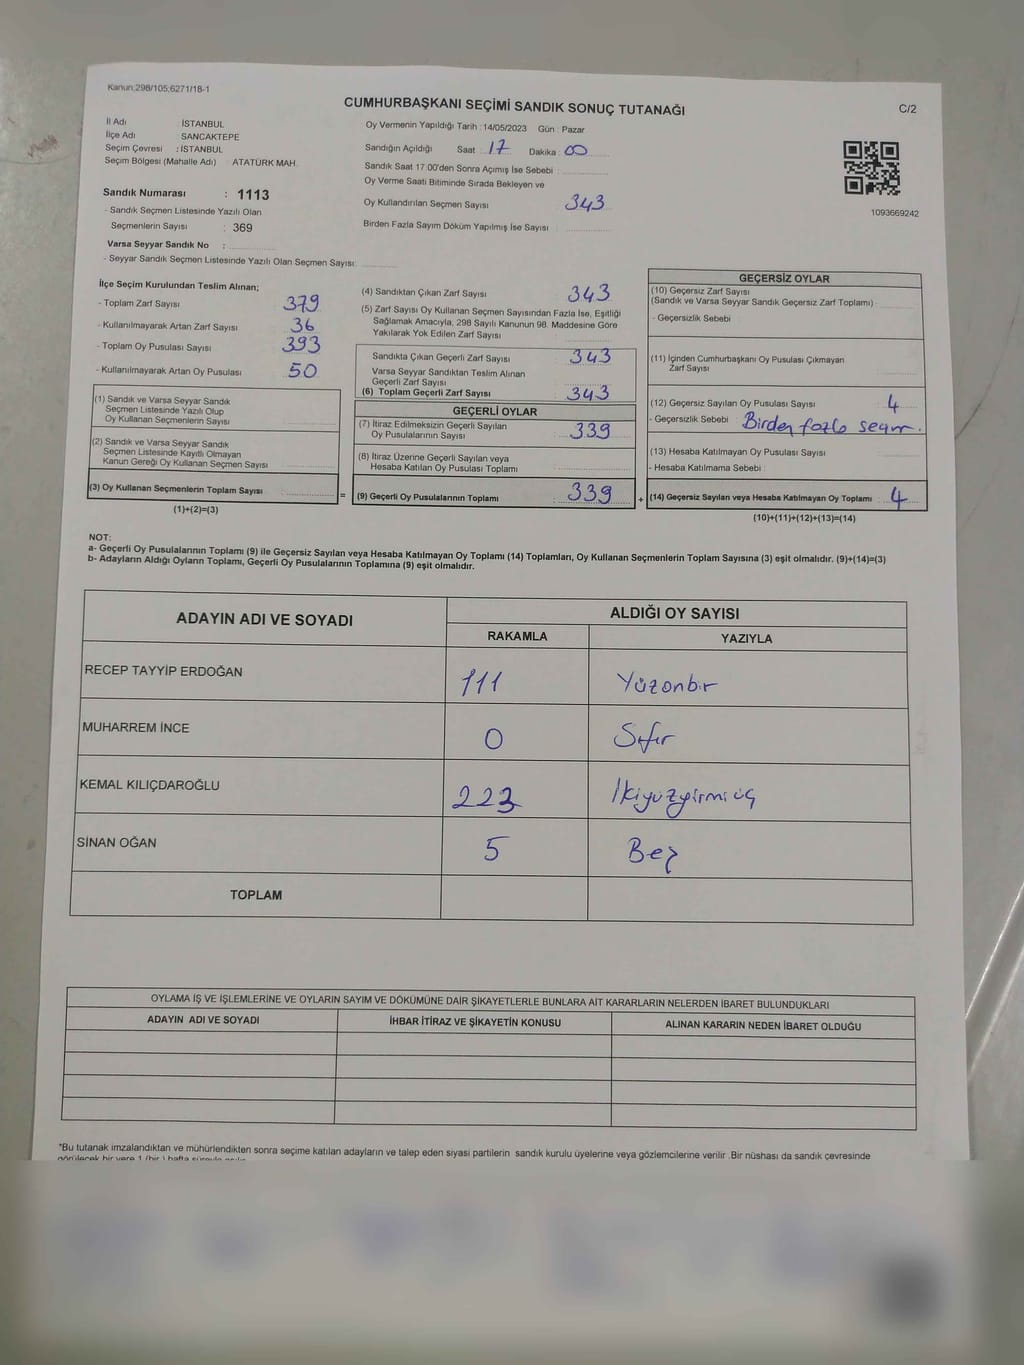 Kanun;298/105;6271/18-1
CUMHURBAŞKANI SEÇİMİ SANDIK SONUÇ TUTANAĞI
C/2
İl Adı : İSTANBUL
İlçe Adı : SANCAKTEPE
Seçim Çevresi : İSTANBUL
Seçim Bölgesi (Mahalle Adı) : ATATÜRK MAH.
Sandık Numarası : 1113
- Sandık Seçmen Listesinde Yazılı Olan
Seçmenlerin Sayısı : 369
Varsa Seyyar Sandık No :
- Seyyar Sandık Seçmen Listesinde Yazılı Olan Seçmen Sayısı:
Oy Vermenin Yapıldığı Tarih :14/05/2023 Gün : Pazar
Sandığın Açıldığı Saat : 17 Dakika : 00
Sandık Saat 17:00'den Sonra Açımış İse Sebebi :
Oy Verme Saati Bitiminde Sırada Bekleyen ve
Oy Kullandırılan Seçmen Sayısı : 343
Birden Fazla Sayım Döküm Yapılmış İse Sayısı :
1093669242
İlçe Seçim Kurulundan Teslim Alınan;
- Toplam Zarf Sayısı : 379
- Kullanılmayarak Artan Zarf Sayısı : 36
- Toplam Oy Pusulası Sayısı : 393
- Kullanılmayarak Artan Oy Pusulası : 50
(1) Sandık ve Varsa Seyyar Sandık
Seçmen Listesinde Yazılı Olup
Oy Kullanan Seçmenlerin Sayısı :
(2) Sandık ve Varsa Seyyar Sandık
Seçmen Listesinde Kayıtlı Olmayan
Kanun Gereği Oy Kullanan Seçmen Sayısı :
(3) Oy Kullanan Seçmenlerin Toplam Sayısı :
(1)+(2)=(3)
=
(4) Sandıktan Çıkan Zarf Sayısı : 343
(5) Zarf Sayısı Oy Kullanan Seçmen Sayısından Fazla İse, Eşitliği
Sağlamak Amacıyla, 298 Sayılı Kanunun 98. Maddesine Göre
Yakılarak Yok Edilen Zarf Sayısı :
Sandıkta Çıkan Geçerli Zarf Sayısı : 343
Varsa Seyyar Sandıktan Teslim Alınan
Geçerli Zarf Sayısı :
(6) Toplam Geçerli Zarf Sayısı : 343
GEÇERLİ OYLAR
(7) İtiraz Edilmeksizin Geçerli Sayılan
Oy Pusulalarının Sayısı : 339
(8) İtiraz Üzerine Geçerli Sayılan veya
Hesaba Katılan Oy Pusulası Toplamı :
(9) Geçerli Oy Pusulalarının Toplamı : 339
+
GEÇERSİZ OYLAR
(10) Geçersiz Zarf Sayısı
(Sandık ve Varsa Seyyar Sandık Geçersiz Zarf Toplamı) :
- Geçersizlik Sebebi :
(11) İçinden Cumhurbaşkanı Oy Pusulası Çıkmayan
Zarf Sayısı :
(12) Geçersiz Sayılan Oy Pusulası Sayısı : 4
- Geçersizlik Sebebi : Birden fazla seçim.
(13) Hesaba Katılmayan Oy Pusulası Sayısı :
- Hesaba Katılmama Sebebi :
(14) Geçersiz Sayılan veya Hesaba Katılmayan Oy Toplamı : 4
(10)+(11)+(12)+(13)=(14)
NOT:
a- Geçerli Oy Pusulalarının Toplamı (9) ile Geçersiz Sayılan veya Hesaba Katılmayan Oy Toplamı (14) Toplamları, Oy Kullanan Seçmenlerin Toplam Sayısına (3) eşit olmalıdır. (9)+(14)=(3)
b- Adayların Aldığı Oyların Toplamı, Geçerli Oy Pusulalarının Toplamına (9) eşit olmalıdır.
ADAYIN ADI VE SOYADI
ALDIĞI OY SAYISI
RAKAMLA YAZIYLA
RECEP TAYYİP ERDOĞAN 111 Yüzonbir
MUHARREM İNCE 0 Sıfır
KEMAL KILIÇDAROĞLU 223 İkiyüzyirmiüç
SİNAN OĞAN 5 Beş
TOPLAM
OYLAMA İŞ VE İŞLEMLERİNE VE OYLARIN SAYIM VE DÖKÜMÜNE DAİR ŞİKAYETLERLE BUNLARA AİT KARARLARIN NELERDEN İBARET BULUNDUKLARI
ADAYIN ADI VE SOYADI İHBAR İTİRAZ VE ŞİKAYETİN KONUSU ALINAN KARARIN NEDEN İBARET OLDUĞU
*Bu tutanak imzalandıktan ve mühürlendikten sonra seçime katılan adayların ve talep eden siyasi partilerin sandık kurulu üyelerine veya gözlemcilerine verilir .Bir nüshası da sandık çevresinde